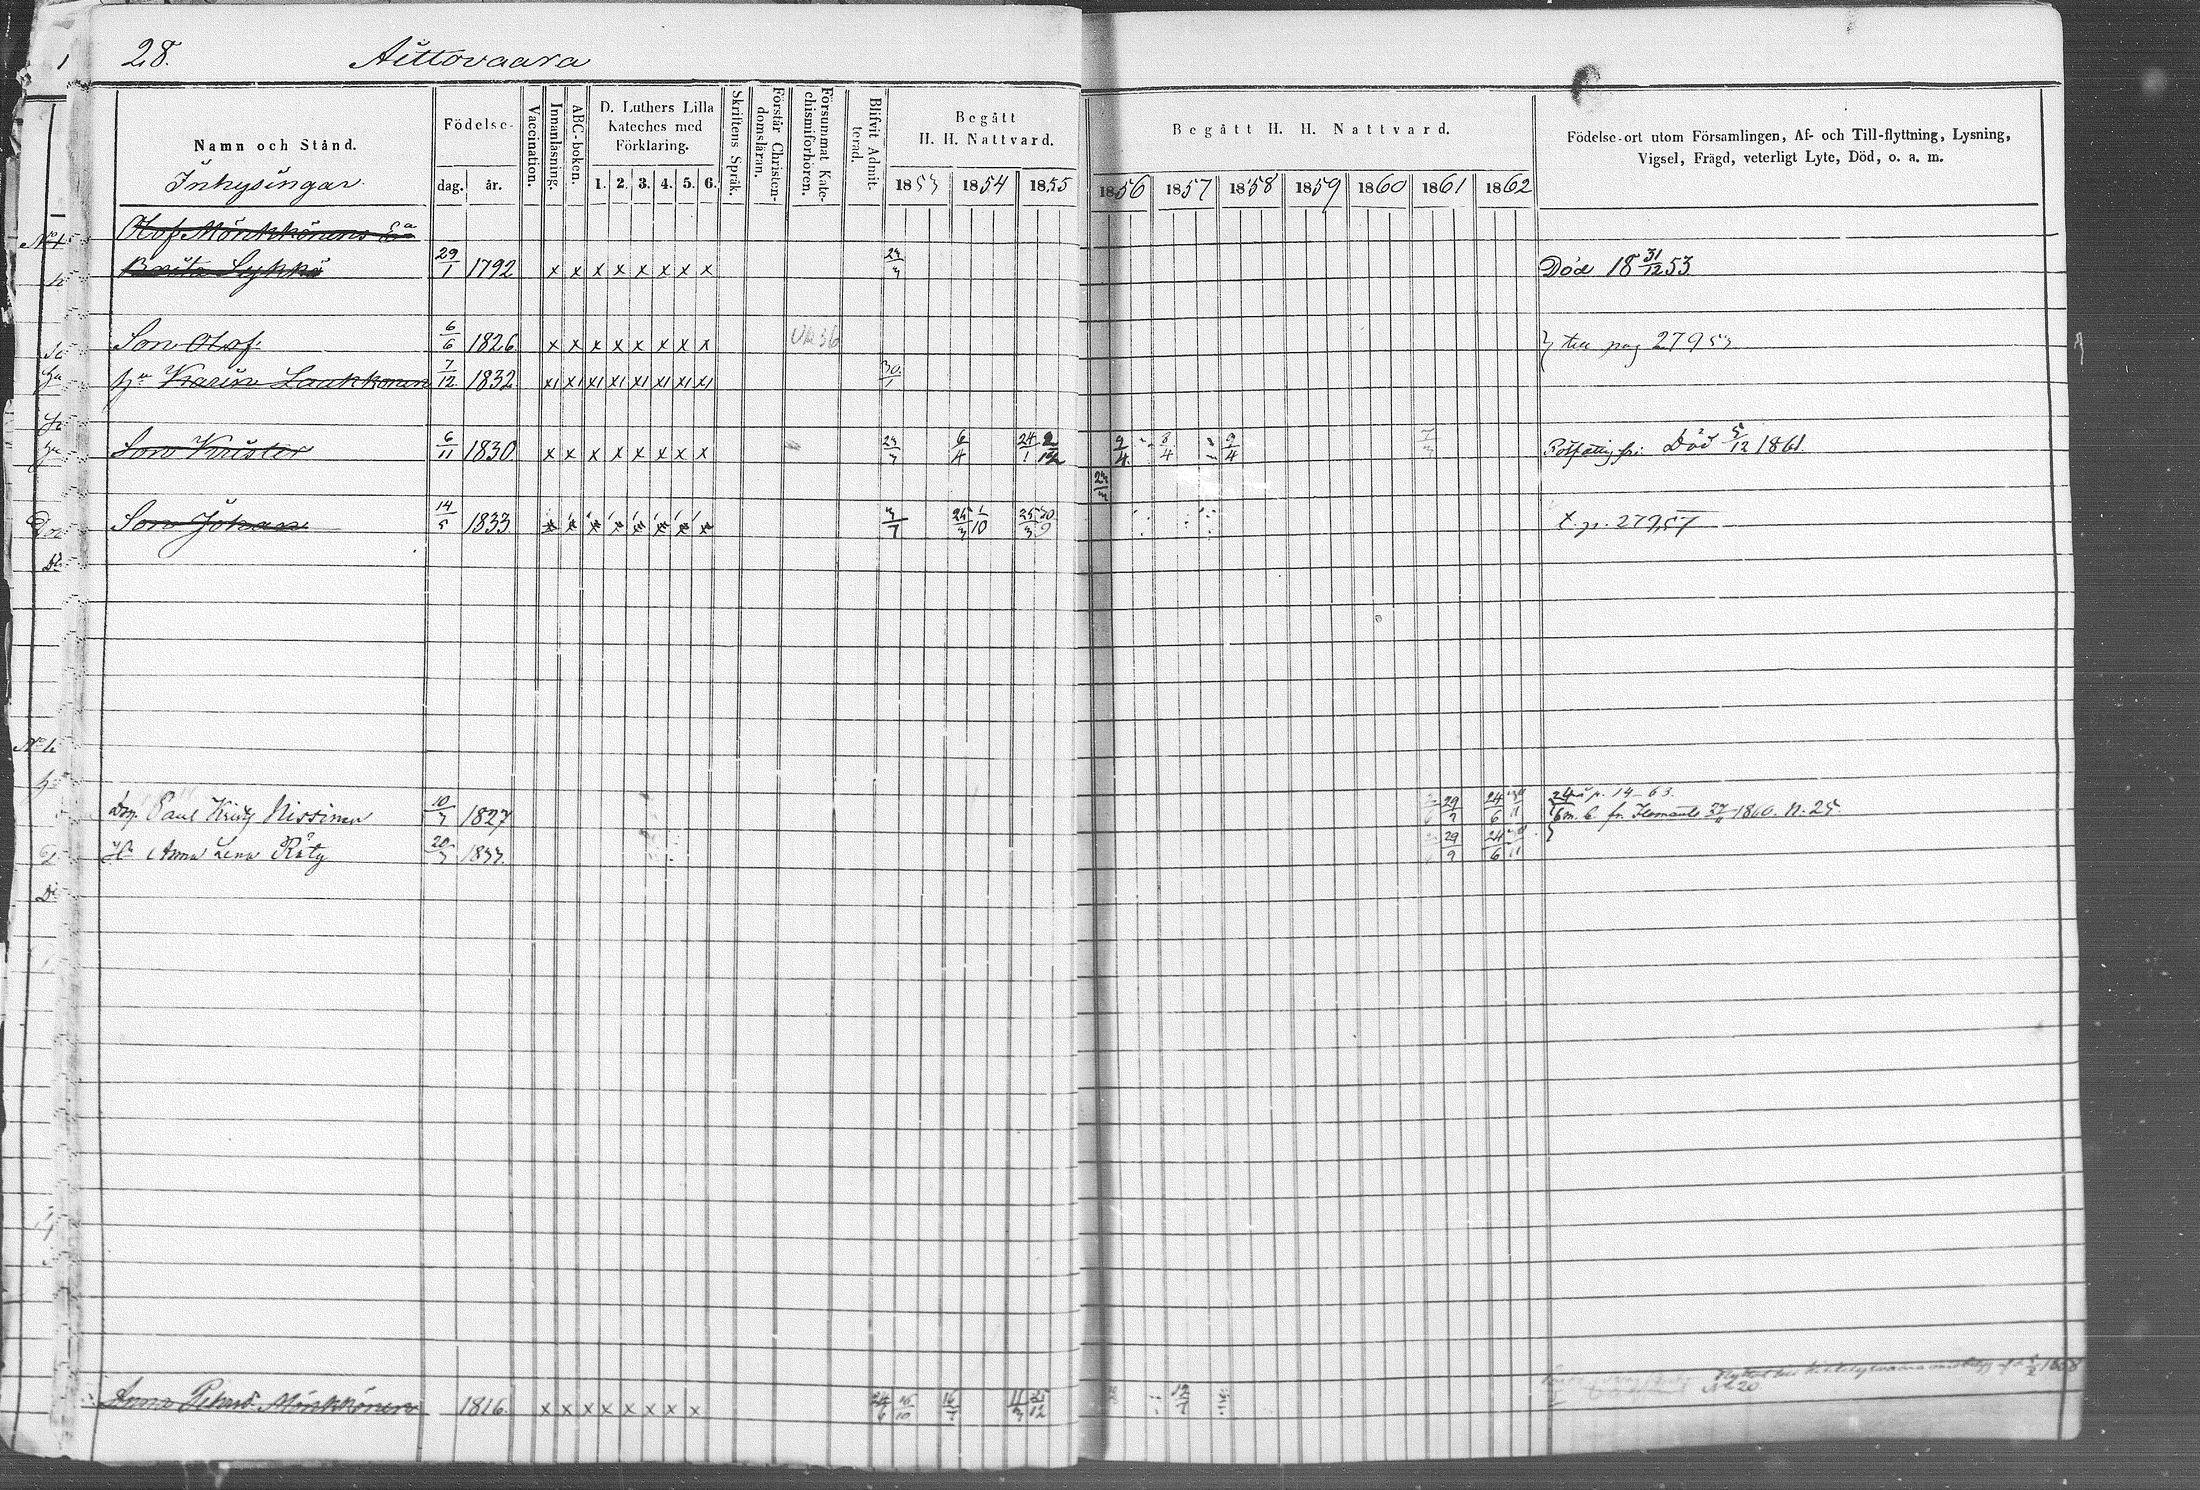 28. Aittovaara
Namn och Stånd.
Inhysingar.
Födelse-
dag. år.
Vaccination.
Innanläsning.
ABC-boken.
D. Luthers Lilla
Kateches med
Förklaring.
1. 2. 3. 4. 5. 6.
Skriftens Språk.
Förstår Christen-
domsläran.
Försummat Kate-
chismiförhören.
Blifvit Admit-
terad.
Begått
H. H. Nattvard.
1853 1854 1855
Begått H. H. Nattvard.
1856 1857 1858 1859 1860 1861 1862
Födelse-ort utom Församlingen, Af- och Till-flyttning, Lysning,
Vigsel, Frägd, veterligt Lyte, Död, o. a. m.
Olof Mönkkönens Ea
Brita Lykkä 29/1 1792 x x x x x x x x 23/3 Död 18 31/12 53.
Son Olof 6/6 1826 x x x x x x x x } till pag 279 53
hu Karin Laukkonen 7/12 1832 x x x x x x x x 30/1
Son Krister 6/11 1830 x x x x x x x x 23/3 6/4 24/1 2/12 9/4 8/4 9/4 7/3 Död 5/12 1861.
23/3
Son Johan 14/5 1833 x x x x x x x x 3/7 25/3 1/10 25/3 30/9 t. p. 279,57
p. 14-63.
Drg. Paul Nissinen 10/3 1827 29/9 24/6 fr. 1860. N. 25.
Hu Anna Lena Räty 20/3 1833. 29/9 24/6
Anna Petersd. Mönkkönen 1816. x x x x x x x x 24/6 16/7 11/3 25/12 12/7 1858
N. 20